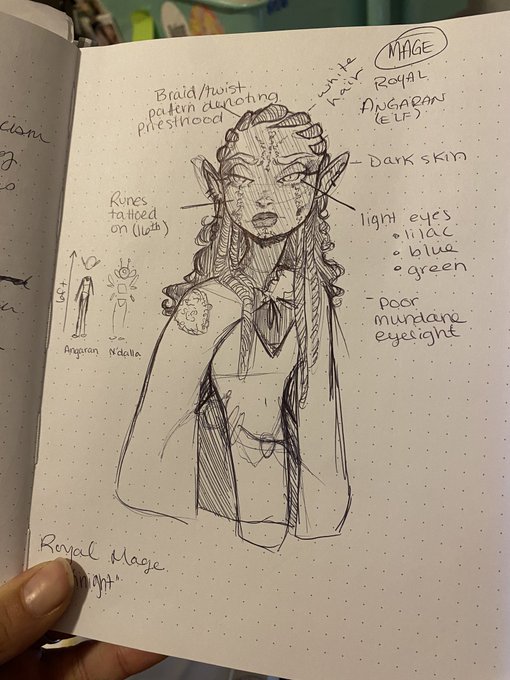 MAGE
ROYAL
ANGARAN
(ELF)
white
hair
Braid/twist
pattern denoting
priesthood
Dark skin
Runes
tattoed
on (16th)
light eyes
• lilac
• blue
• green
- poor
mundane
eyesight
6ft+
Angaran
N'dalla
Royal Mage
cism